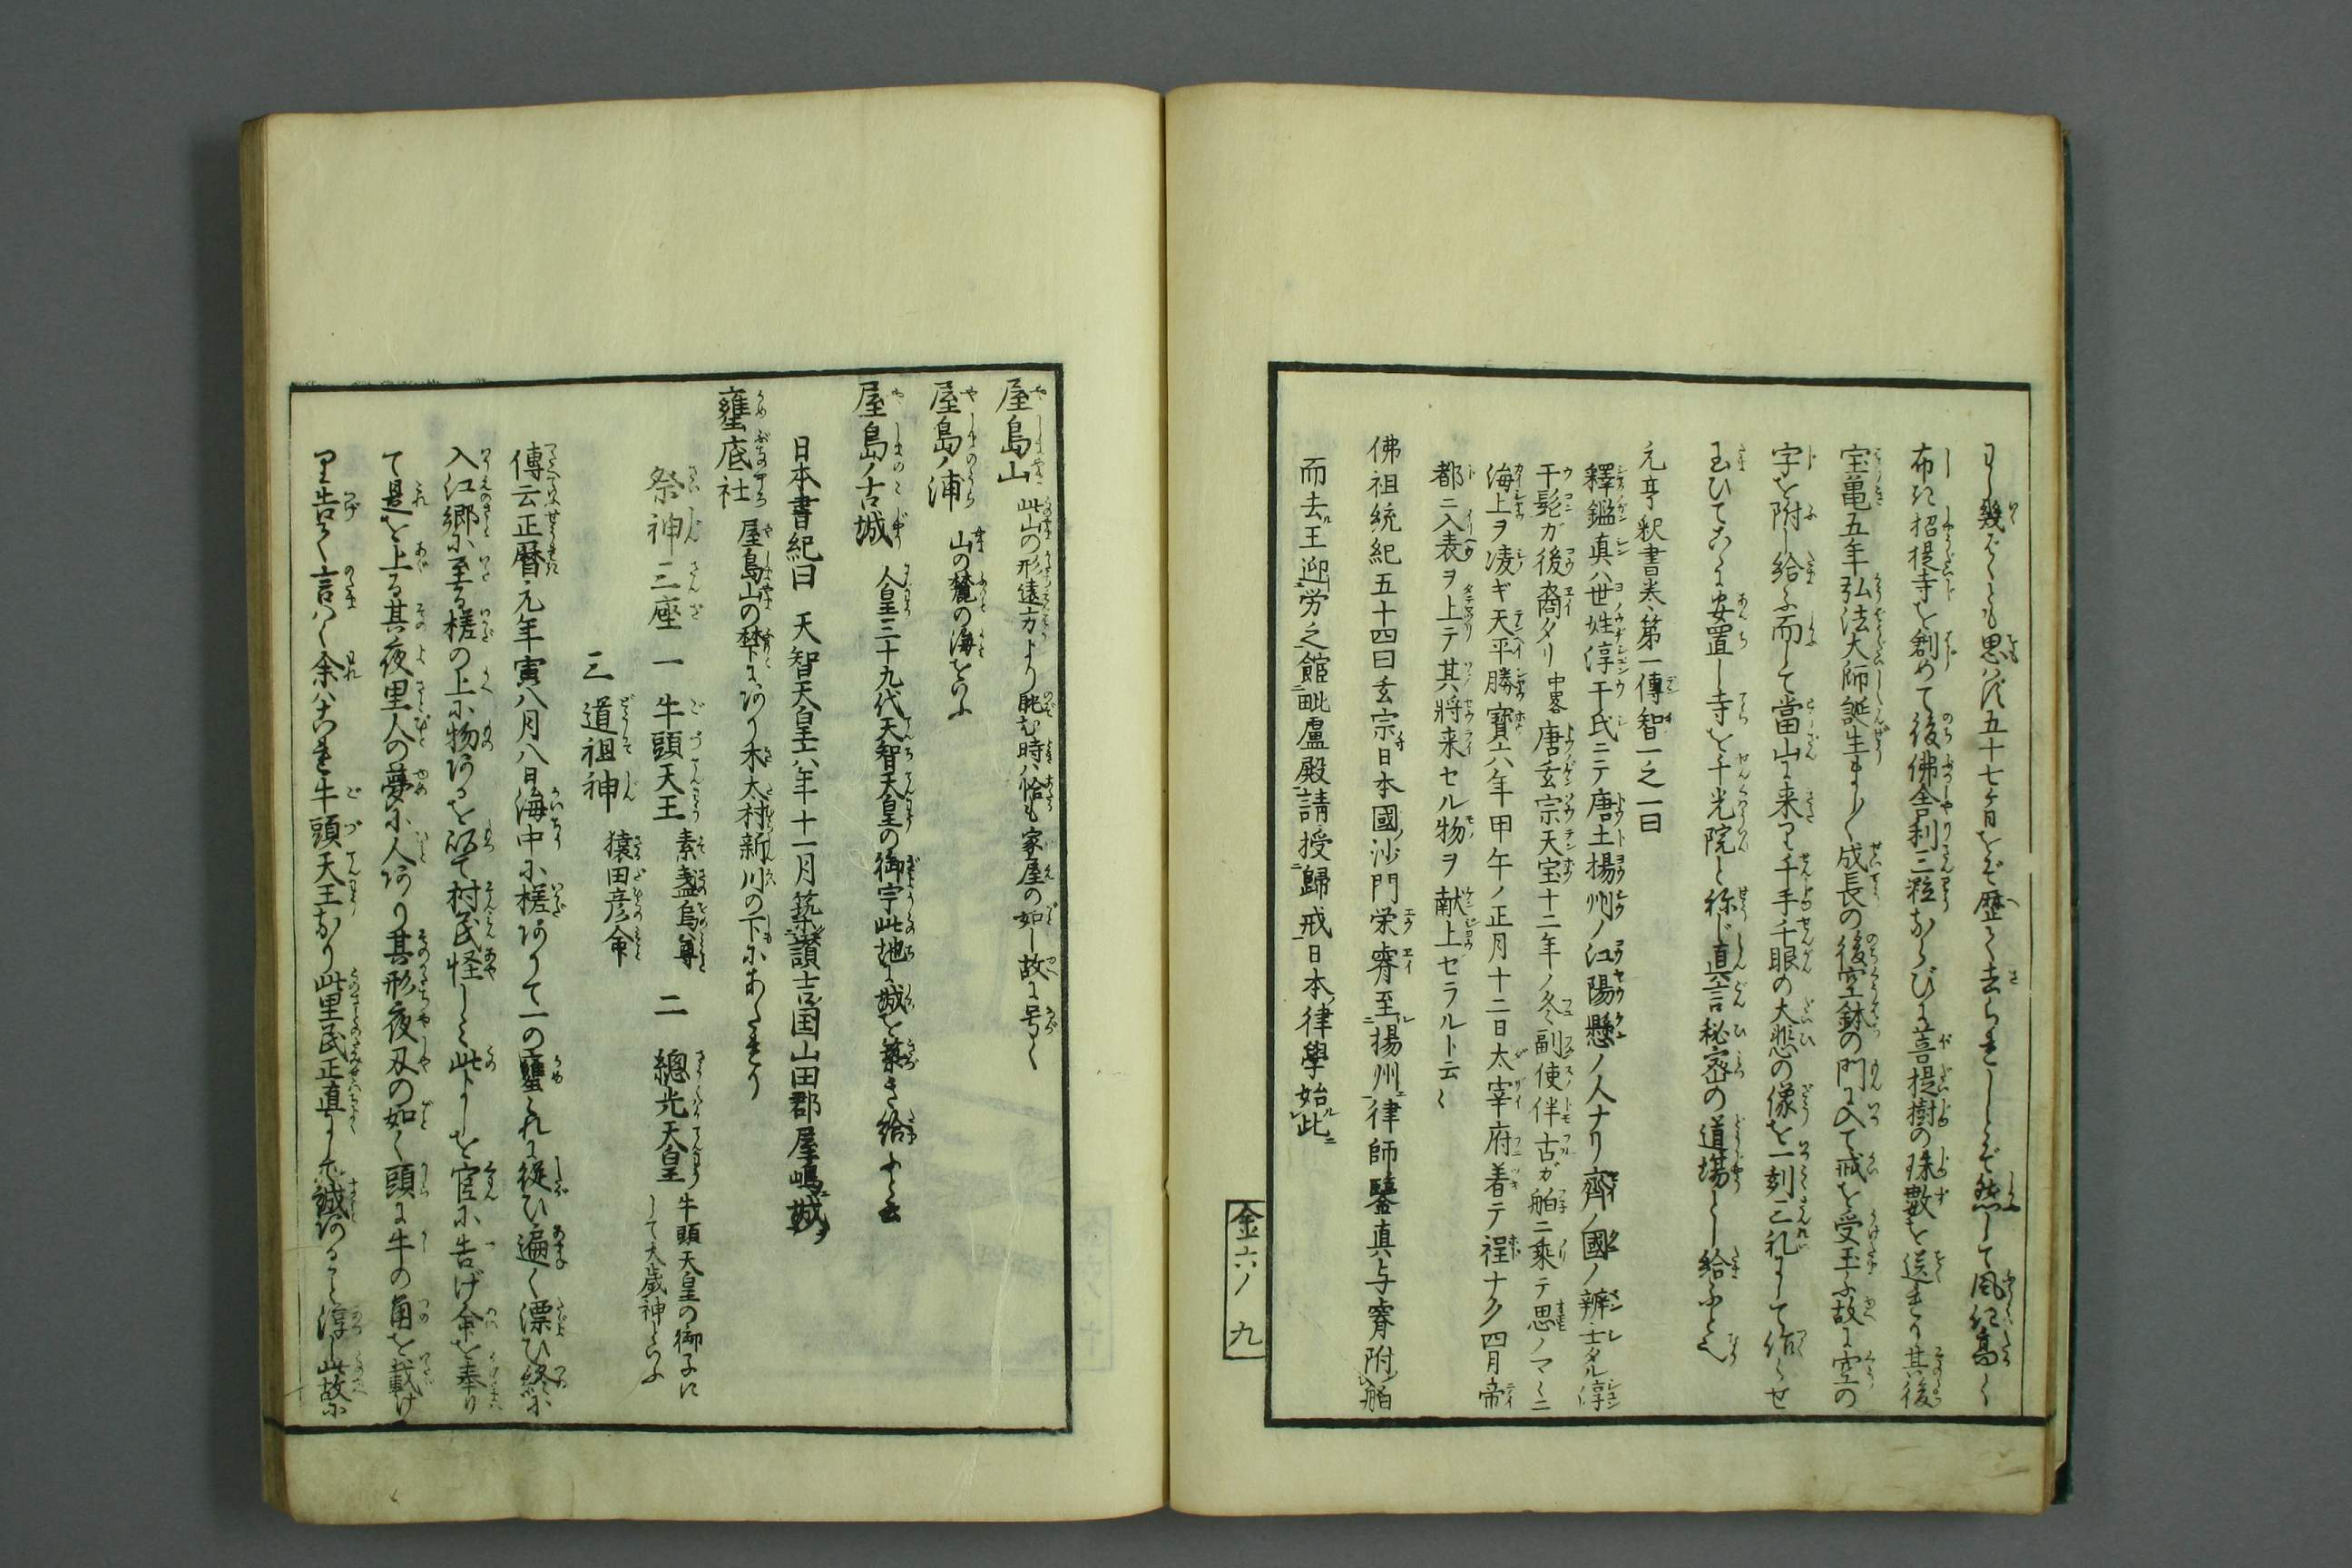 幾ばくも思はず五十七ヶ日をぞ歴て去られしとぞ然して風化高く
布き招提寺を創めて後佛舎利三粒ならびに菩提樹の珠數を送れり其後
宝亀五年弘法大師誕生まし〱成長の後空鉢の門に入て戒を受玉ふ故に空の
字を附し給ふ而して當山に来り千手千眼の大悲の像を一刻三礼にして作らせ
玉ひてこゝに安置し寺を千光院と称じ真言秘密の道場とし給ふと也
元亨釈書巻第一傳智一之一曰
釋鑑真ハ世姓淳于氏ニテ唐土揚州ノ江陽懸ノ人ナリ齊ノ國ノ辨士タル淳
于髡ガ後裔タリ中畧唐玄宗天宝十二年ノ冬副使伴古ガ舶ニ乘テ思ノマヽニ
海上ヲ凌ギ天平勝寳六年甲午ノ正月十二日太宰府着テ程ナク四月帝
都ニ入表ヲ上テ其將来セル物ヲ献上セラルト云〻
佛祖統紀五十四曰玄宗時日本國ノ沙門栄睿至揚州律師鑒真与睿附舶
而去王迎労之館毗盧殿請授歸戒日本律學始此
金六ノ 九
屋島山 此山の形遠方より眺む時ハ恰も家屋の如し故に号く
屋島ノ浦 山の麓の海をいふ
屋島ノ古城 人皇三十九代天智天皇の御宇此地に城を築き給ふと云
日本書紀曰 天智天皇六年十一月築讃吉国山田郡屋嶋城ヲ
壅底社 屋島山の梺にあり木太村新川の下にあたれり
祭神三座 一 牛頭天王 素盞烏尊 二 總光天皇 牛頭天皇の御子にして大歳神といふ
三 道祖神 猿田彦命
傳云正暦元年寅八月八日海中に槎ありて一の壅これに從ひ遍く漂ひ終に
入江郷に至る槎の上に物あるを以て村民怪しみ此よしを官に告げ命を奉り
て是を上る其夜里人の夢に人あり其形夜叉の如く頭に牛の角を載け
り告て言はく余はこれ牛頭天王なり此里民正直にして誠あること淳し此故に